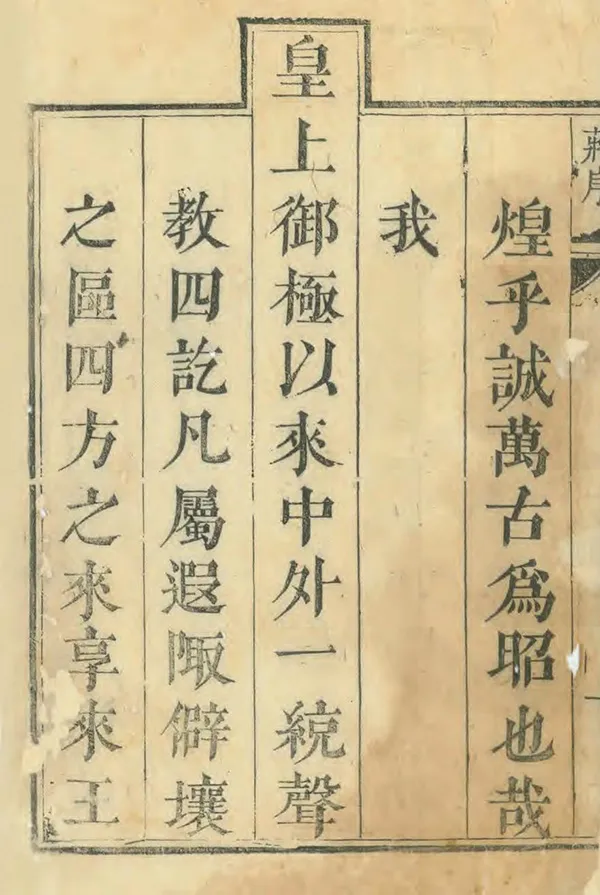 蔣序
煌乎誠萬古爲昭也哉
我
皇上御極以來中外一統聲
教四訖凡屬遐陬僻壤
之區四方之來享來王